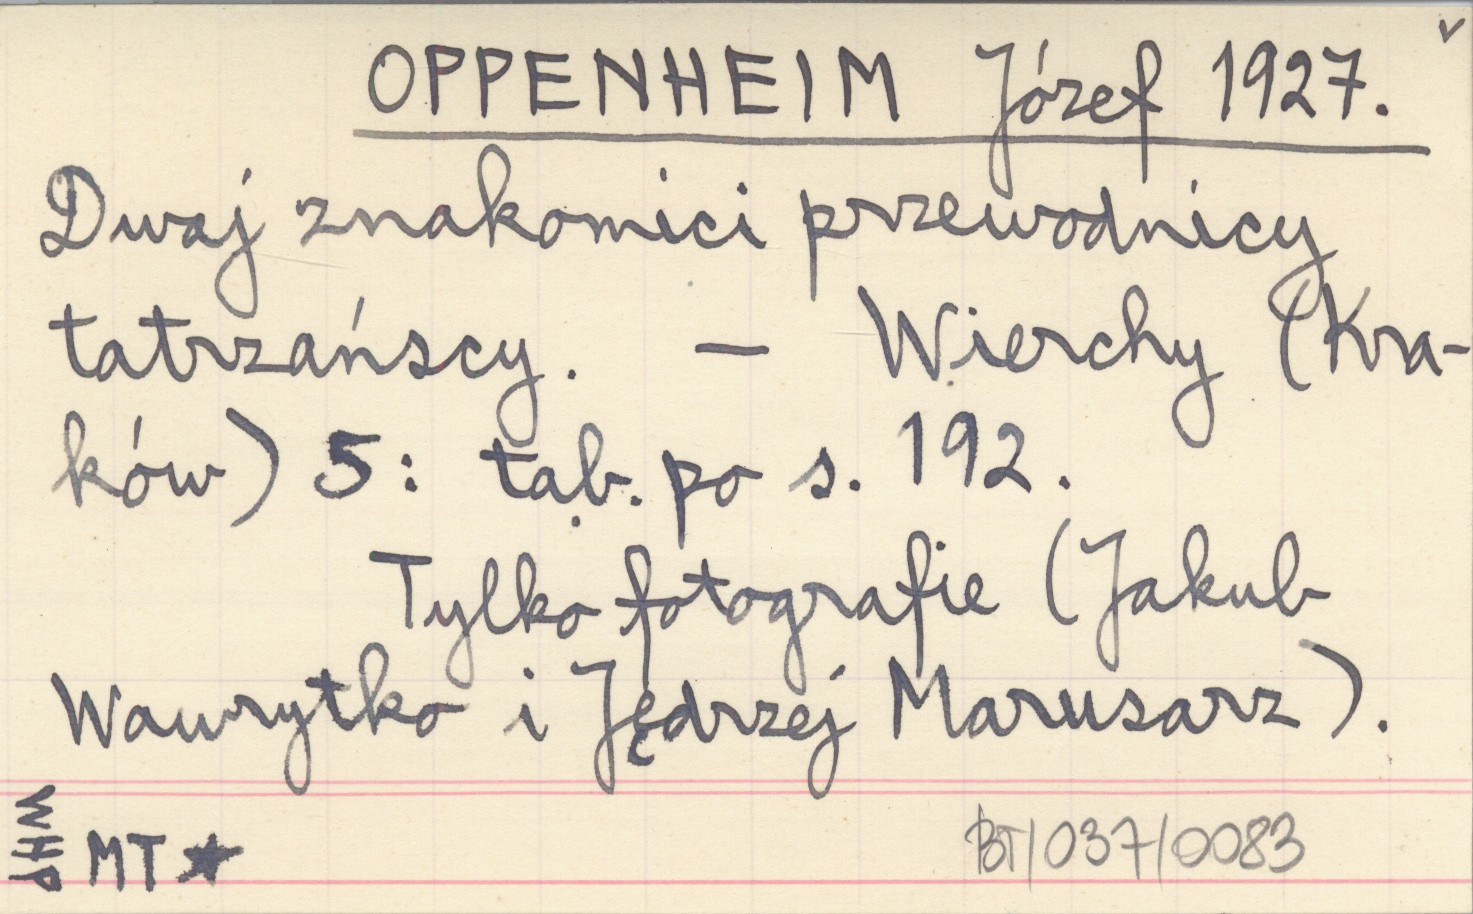 OPPENHEIM Józef 1927.
Dwaj znakomici przewodnicy
tatrzańscy. — Wierchy (Kra-
ków) 5: tab. po s. 192.
Tylko fotografie (Jakub
Wawrytko i Jędrzej Marusarz).
WHP MT ★ BT/037/0083